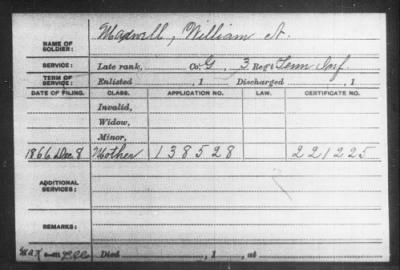 NAME OF SOLDIER: Maxwell, William A.
SERVICE: Late rank, Co. G, 3 Reg't Tenn Inf.
TERM OF SERVICE: Enlisted , 1 Discharged , 1
DATE OF FILING. CLASS. APPLICATION NO. LAW. CERTIFICATE NO.
Invalid,
Widow,
Minor,
1866 Dec 8 Mother 138528 221225
ADDITIONAL SERVICES:
REMARKS:
Max
Died , 1 , at